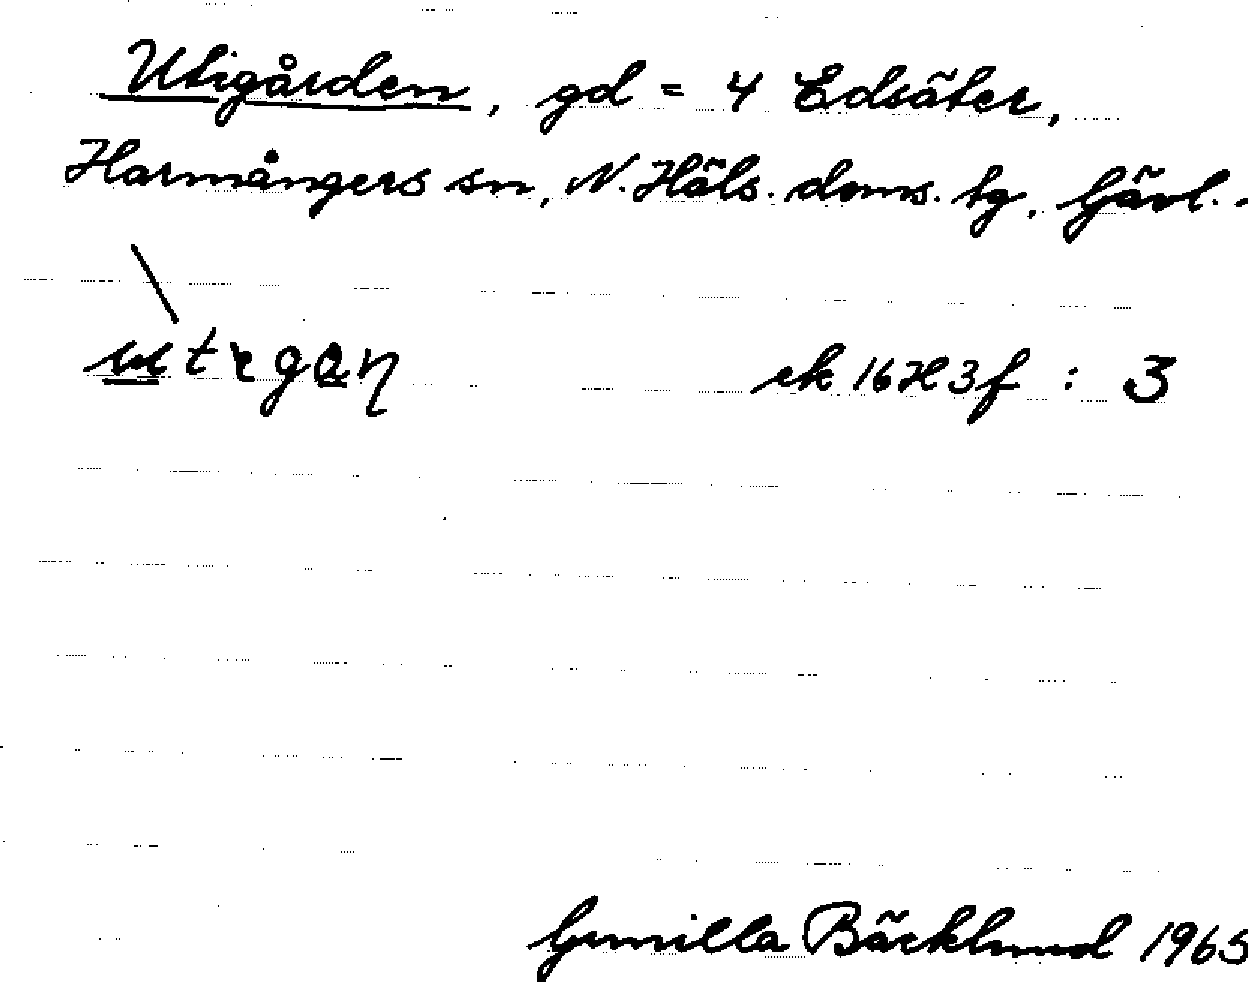 Utigården, gd = 4 Edsäter,
Harmångers sn, N. Häls. doms. tg, Gävl.
ek 16H3f : 3
Gunilla Bäcklund 1965